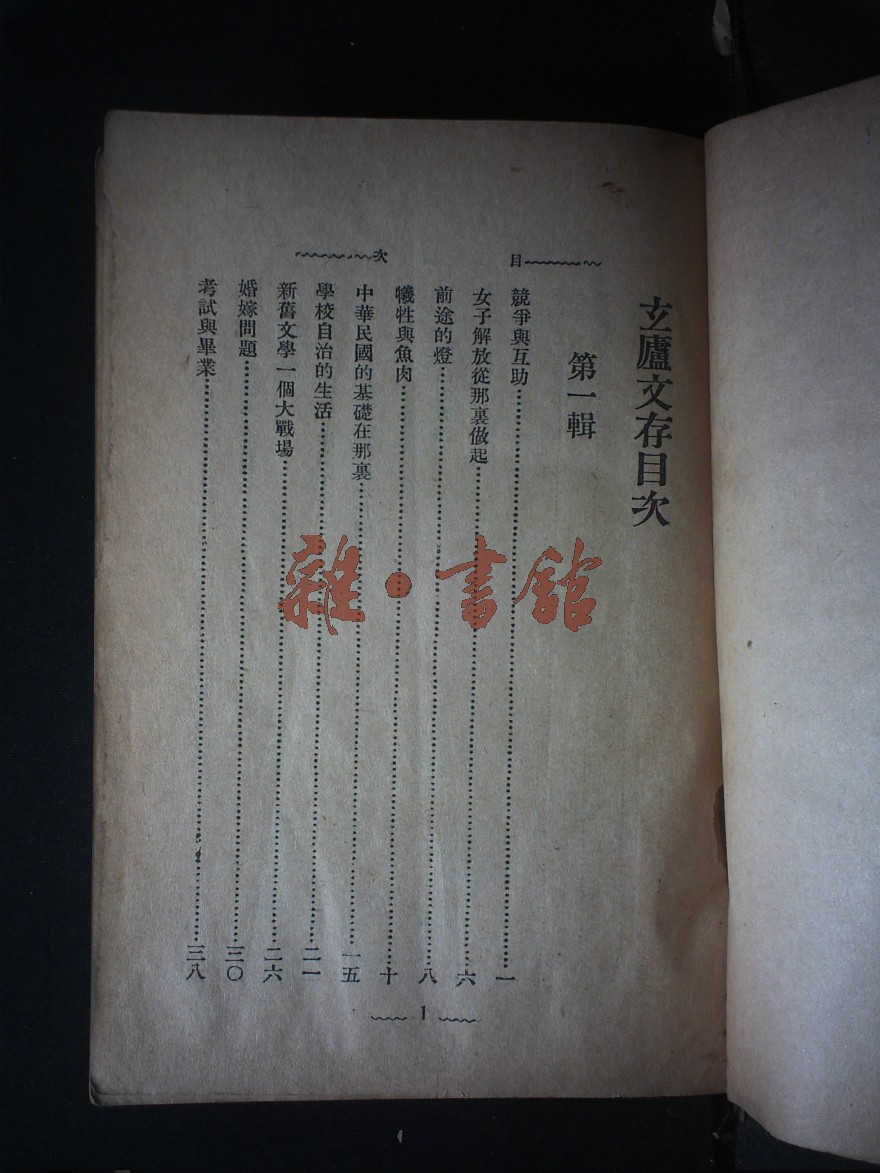 玄廬文存目次
第一輯
目次
競爭與互助……一
女子解放從那裏做起……六
前途的燈……八
犧牲與魚肉……十
中華民國的基礎在那裏……一五
學校自治的生活……二一
新舊文學一個大戰場……二六
婚嫁問題……三〇
考試與畢業……三八
1
雜·書館